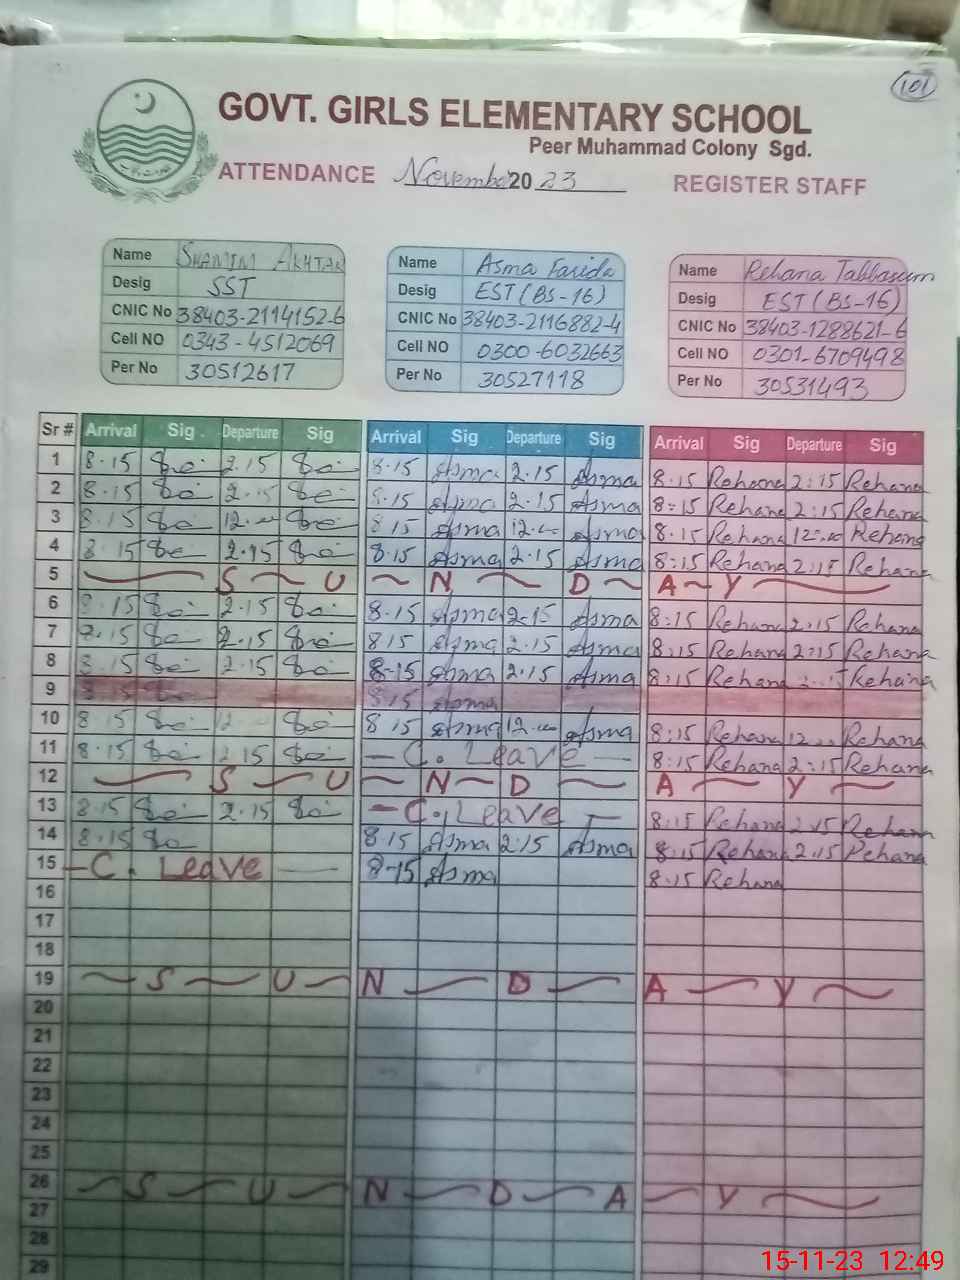 101
GOVT. GIRLS ELEMENTARY SCHOOL
Peer Muhammad Colony Sgd.
ATTENDANCE November 2023 REGISTER STAFF
Name SHAMIM AKHTAR
Desig SST
CNIC No 38403-2114152-6
Cell NO 0343-4512069
Per No 30512617
Name Asma Farida
Desig EST (BS-16)
CNIC No 38403-2116882-4
Cell NO 0300-6032663
Per No 30527118
Name Rehana Tabbasum
Desig EST (BS-16)
CNIC No 38403-1288621-6
Cell NO 0301-6709498
Per No 30531493
Sr # Arrival Sig. Departure Sig Arrival Sig Departure Sig Arrival Sig Departure Sig
1 8.15 2.15 8.15 Asma 2.15 Asma 8.15 Rehana 2:15 Rehana
2 8.15 2.15 8.15 Asma 2.15 Asma 8:15 Rehana 2:15 Rehana
3 8.15 12.00 8.15 Asma 12.00 Asma 8.15 Rehana 12.00 Rehana
4 8.15 2.15 8.15 Asma 2.15 Asma 8:15 Rehana 2:15 Rehana
5 S U N D A Y
6 8.15 2.15 8.15 Asma 2.15 Asma 8:15 Rehana 2:15 Rehana
7 8.15 2.15 8.15 Asma 2.15 Asma 8:15 Rehana 2:15 Rehana
8 8.15 2.15 8-15 Asma 2.15 Asma 8:15 Rehana Rehana
9 8.15 8.15 Asma
10 8.15 12 8.15 Asma 12.00 Asma 8:15 Rehana 12.00 Rehana
11 8.15 2.15 - C. Leave - 8:15 Rehana 2:15 Rehana
12 S U N D A Y
13 8.15 2.15 - C. Leave - 8:15 Rehana 2:15 Rehana
14 8.15 8.15 Asma 2:15 Asma 8:15 Rehana 2.15 Rehana
15 - C. Leave - 8-15 Asma 8.15 Rehana
16
17
18
19 S U N D A Y
20
21
22
23
24
25
26 S U N D A Y
27
28
29
15-11-23 12:49